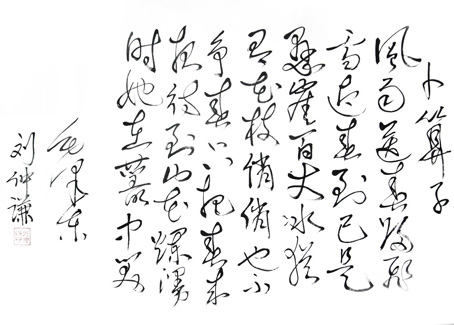 卜算子
風雨送春歸飛
雪迎春到已是
懸崖百丈冰猶
有花枝俏俏也不
争春只把春来
报待到山花爛漫
时她在叢中笑
毛泽东
刘仲谦